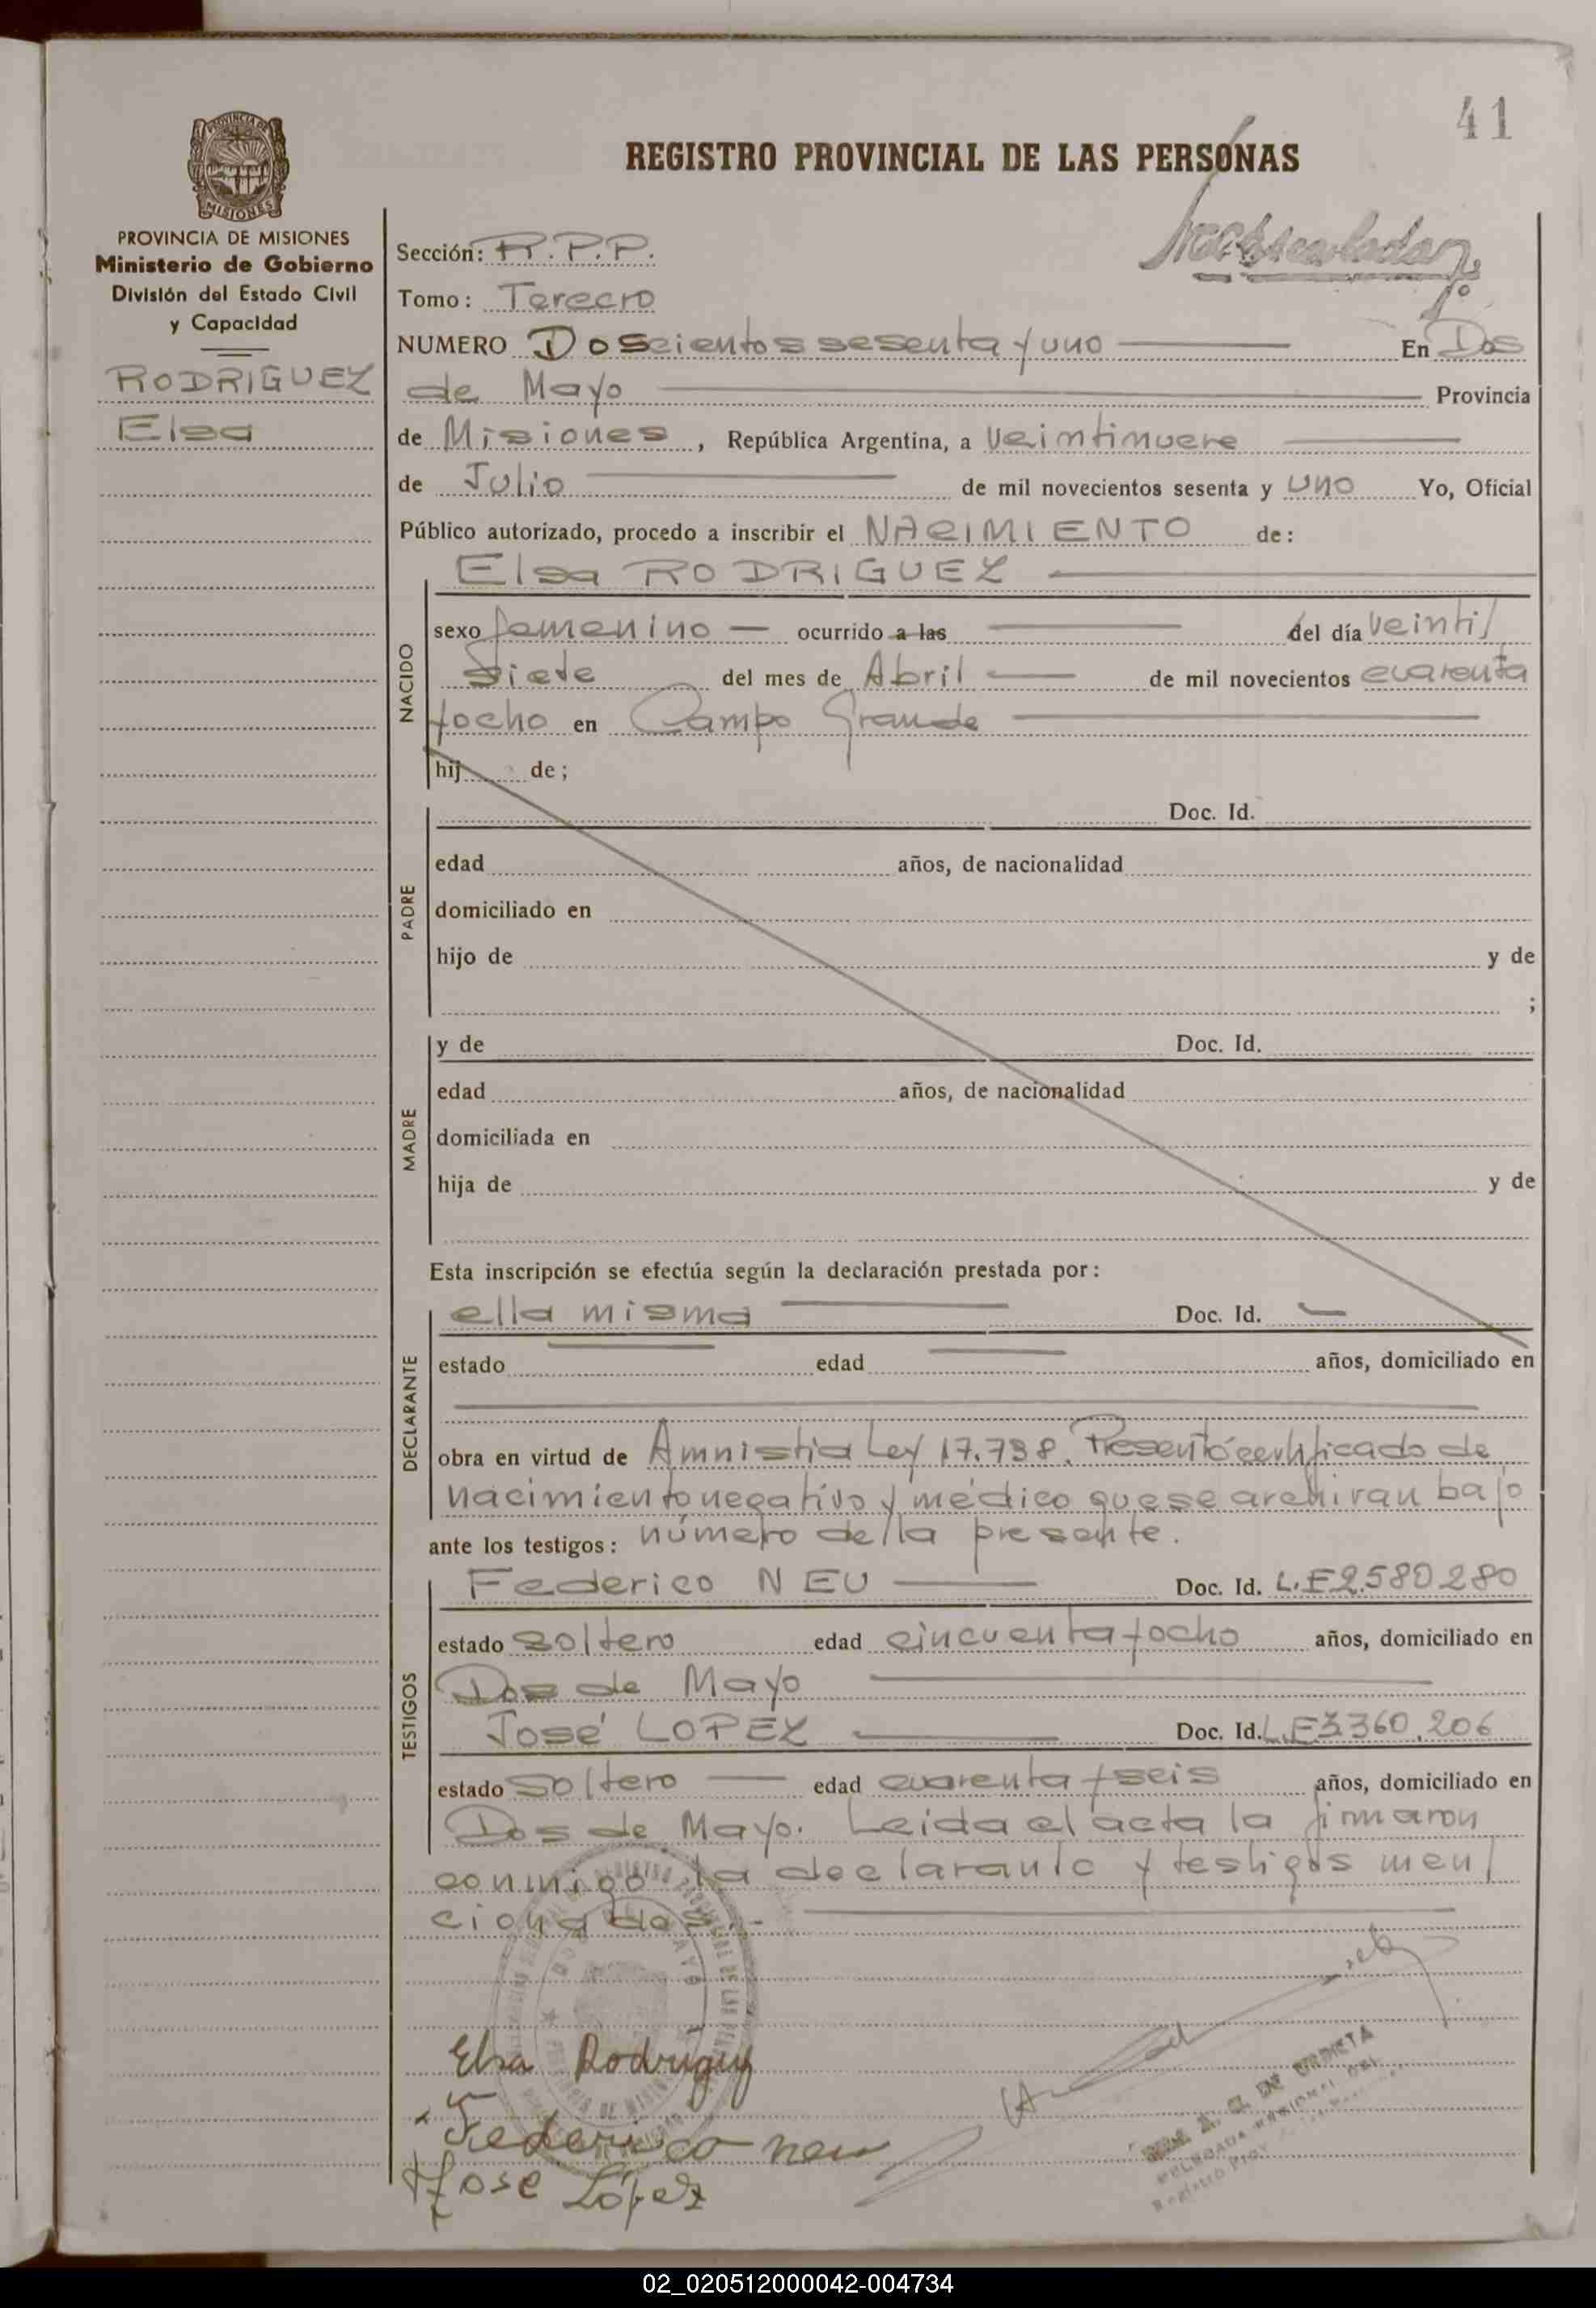 41
PROVINCIA DE
MISIONES
REGISTRO PROVINCIAL DE LAS PERSONAS
PROVINCIA DE MISIONES
Ministerio de Gobierno
División del Estado Civil
y Capacidad
RODRIGUEZ
Elsa
Sección: R.P.P.
Tomo: Tercero
NUMERO Doscientos sesenta y uno En Dos
de Mayo Provincia
de Misiones, República Argentina, a veintinueve
de Julio de mil novecientos sesenta y uno Yo, Oficial
Público autorizado, procedo a inscribir el NACIMIENTO de:
Elsa RODRIGUEZ
NACIDO
sexo femenino — ocurrido a las del día veinti/
siete del mes de Abril de mil novecientos cuarenta
yocho en Campo Grande
hij de;
PADRE
Doc. Id.
edad años, de nacionalidad
domiciliado en
hijo de y de
;
MADRE
y de Doc. Id.
edad años, de nacionalidad
domiciliada en
hija de y de
Esta inscripción se efectúa según la declaración prestada por:
DECLARANTE
ella misma Doc. Id. —
estado edad años, domiciliado en
obra en virtud de Amnistia Ley 17.798. Presentó certificado de
nacimiento negativo y médico que se archivan bajo
ante los testigos: número de la presente.
TESTIGOS
Federico NEU Doc. Id. L.E2.580280
estado soltero edad cincuentayocho años, domiciliado en
Dos de Mayo
José LOPEZ Doc. Id. L.E3.360.206
estado soltero — edad cuarenta y seis años, domiciliado en
Dos de Mayo. Leida el acta la firmaron
conmigo la declarante y testigos men/
cionados.-
DOS DE MAYO
Elsa Rodriguez
Federico neu
Jose López
02_020512000042-004734